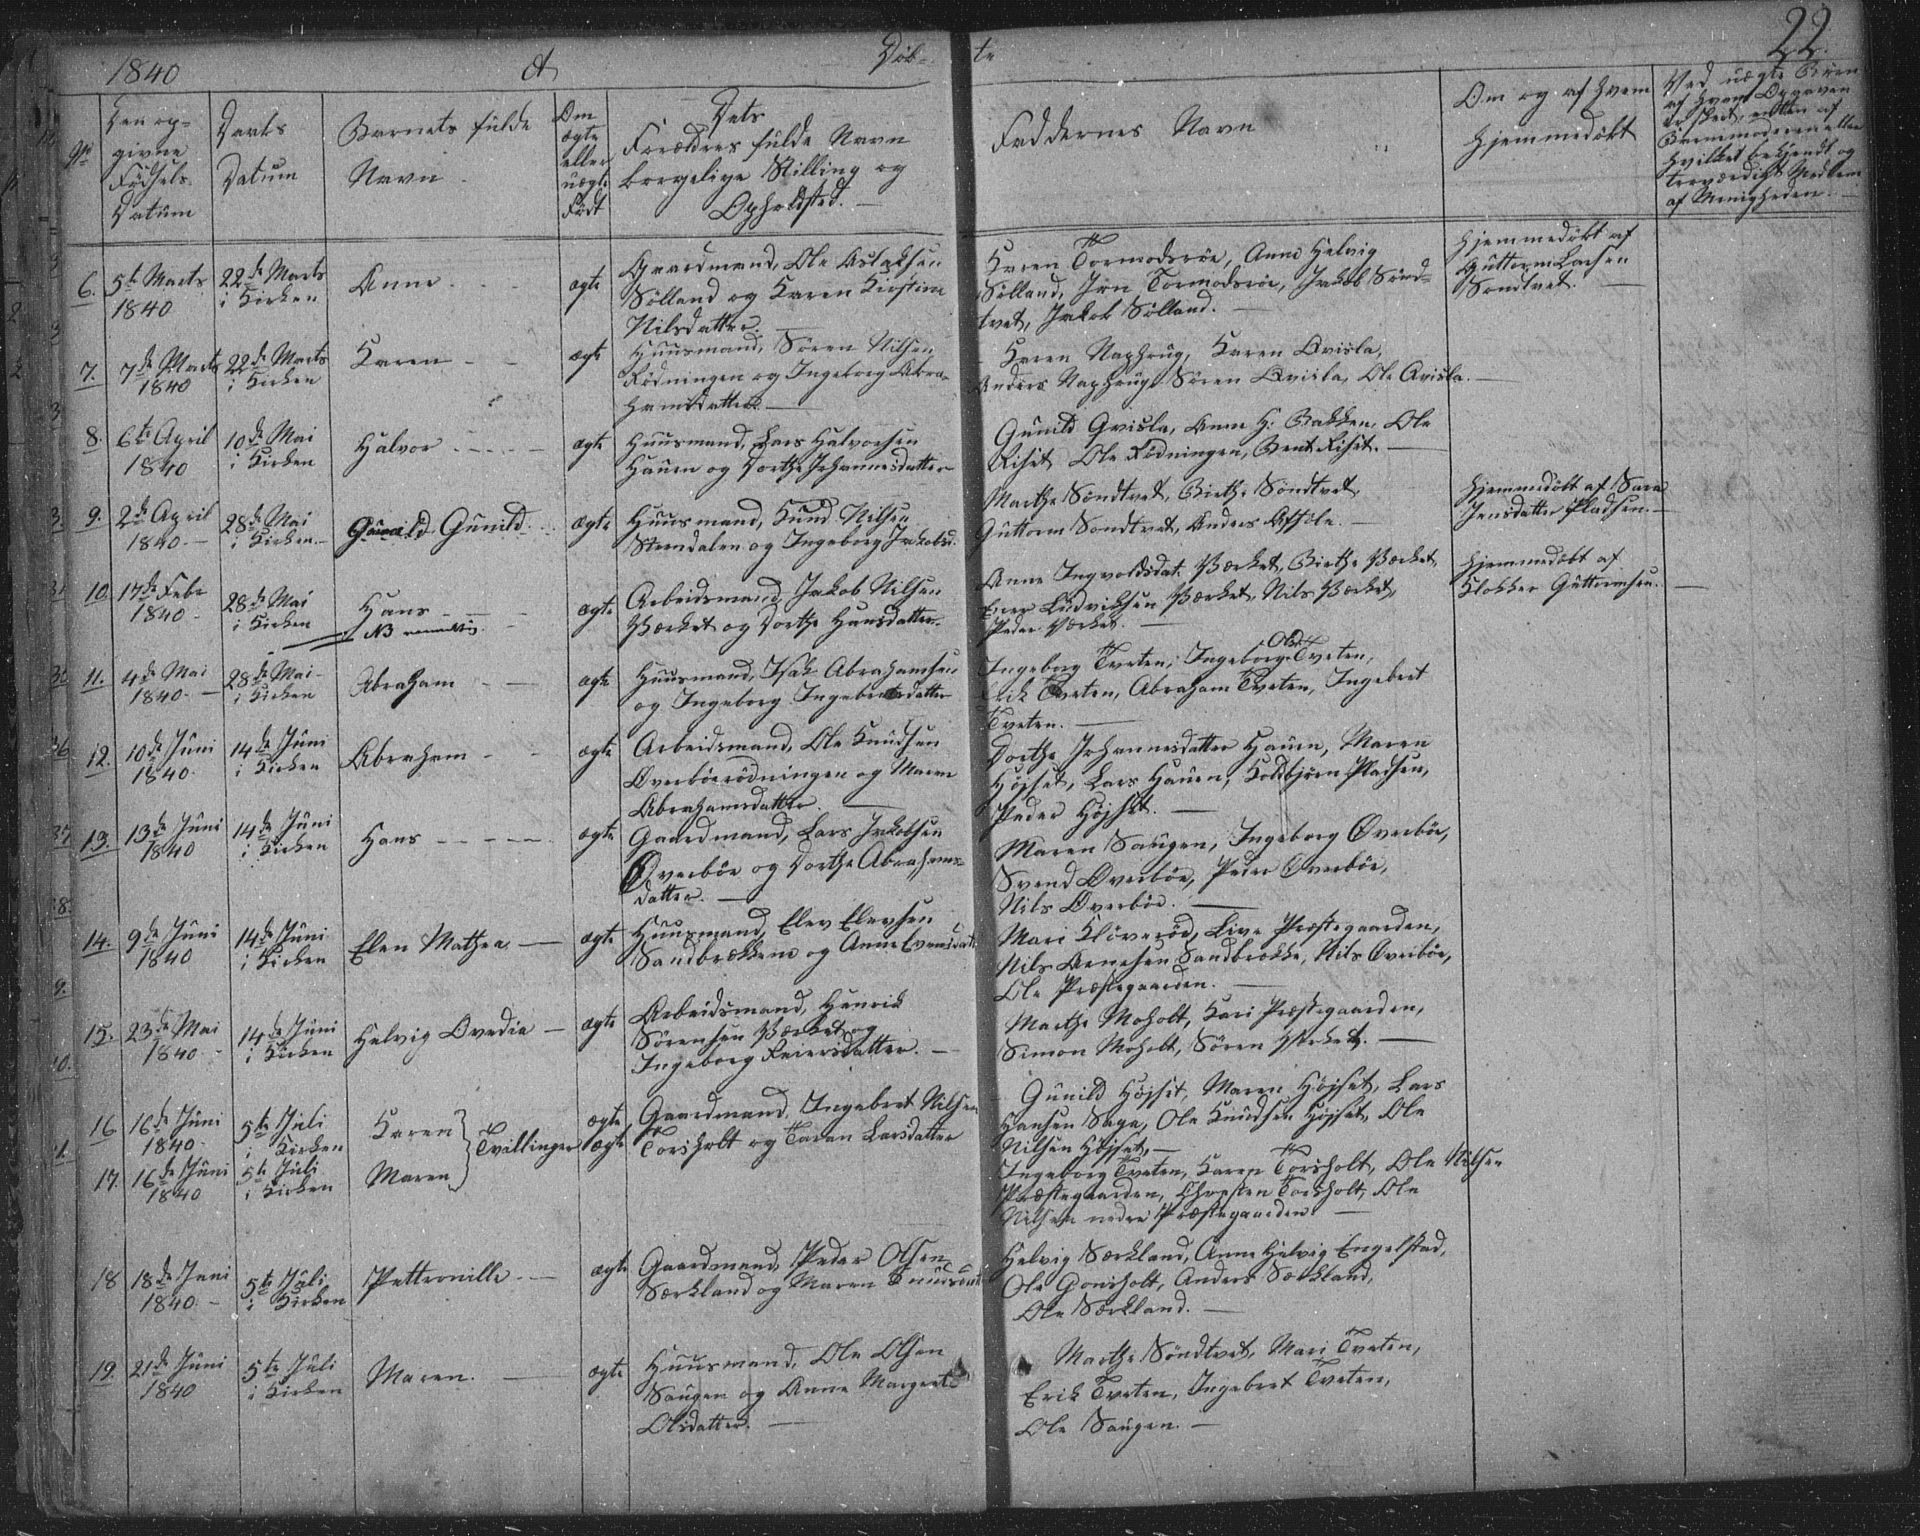 1840
A
Døb-
te
22.
No
Den op-
givne
Fødsels
Datum
Daabs
Datum
Barnets fulde
Navn
Om
ægte
eller
uægte
Født
Dets
Forældres fulde Navn
borgelige Stilling og
Opholdsted.
Faddernes Navn
Om og af hvem
hjemmedøbt
Ved uægte Børn
af hvem Opgaven
er skeet, enten af
Barnemoderen eller
hvilket bekjendt og
troværdigt Medlem
af Menigheden.
6.
5te Marts
1840
22de Marts
i Kirken
Anne
ægte
Gaardmand, Ole Aslaksen
Sølland og Karen Kirstine
Nilsdatter.
Karen Tormodsröe, Anne Helvig
Sølland, Jørn Tormodsröe, Jakob Sönd-
tvet, Jakob Sølland.
Hjemmedøbt af
Guttorm Larsen
Sondtvet.
7.
7de Marts
1840
22de Marts
i Kirken
Karen
ægte
Huusmand, Søren Nilsen
Rödningen og Ingeborg Abra-
hamsdatter
Karen Naphrug, Karen Qvisla,
Anders Naphrug, Søren Qvisla, Ole Qvisla.
8.
6te April
1840
10de Mai
i Kirken
Halvor
ægte
Huusmand, Lars Halvorsen
Hauen og Dorthe Johannesdatter
Gunild Qvisla, Anne H. Bakken, Ole
Riset Ole Rödningen, Bent Riset.
9.
2de April
1840
28de Mai
i Kirken
Gunild
ægte
Huusmand, Knud Nilsen
Stendalen og Ingeborg Jakobsd.
Marthe Söndtvet, Birthe Söndtvet,
Guttorm Sondtvet, Anders
Hjemmedöbt af Sara
Jensdatter Pladsen.
10.
17de Febr
1840
28de Mai
i Kirken
Hans
NB
ægte
Arbeidsmand, Jakob Nilsen
Værket og Dorthe Hansdatter.
Anne Ingvoldsdat. Værket, Birthe Værket,
Ludviksen Værket, Nils Værket,
Peder Værket.
Hjemmedøbt af
Klokker Guttormsen.
11.
4de Mai
1840
28de Mai
i Kirken
Abraham
ægte
Huusmand, Isak Abrahamsen
og Ingeborg Ingebretsdatter
Ingeborg Tveten, Ingeborg Olsd. Tveten,
Erik Tveten, Abraham Tveten, Ingebret
Tveten.
12.
10de Juni
1840
14de Juni
i Kirken
Abraham
ægte
Arbeidsmand, Ole Knudsen
Overböerödningen og Maren
Abrahamsdatter.
Dorthe Johannesdatter Hauen, Maren
Højset, Lars Hauen, Koldbjörn Pladsen,
Peder Højset.
13.
13de Juni
1840
14de Juni
i Kirken
Hans
ægte
Gaardmand, Lars Jakobsen
Overböe og Dorthe Abrahams-
datter.
Maren Saugen, Ingeborg Overböe,
Svend Overböe, Peder Overböe,
Nils Overböe.
14.
9de Juni
1840
14de Juni
i Kirken
Elen Mathea
ægte
Huusmand, Elev Elevsen
Sandbrækkene og Anne
Mari Klöveröd, Live Præstegaarden,
Nils Arnesen Sandbrække, Nils Overböe,
Ole Præstegaarden.
15.
23de Mai
1840
14de Juni
i Kirken
Helvig Ovedia
ægte
Arbeidsmand, Henrik
Sørensen Værket og
Ingeborg Reiersdatter.
Marthe Moholt, Kari Præstegaarden,
Simon Moholt, Søren Værket.
16
16de Juni
1840
5te Juli
i Kirken
Karen
Tvillinger
ægte
ægte
Gaardmand, Ingebret Nilsen
Torsholt og Taran Larsdatter
Gunild Højset, Maren Højset, Lars
Hansen Saga, Ole Knudsen Højset, Ole
Nilsen Højset,
17.
16de Juni
1840
5te Juli
i Kirken
Maren
Ingeborg Tveten, Karen Torsholt, Ole Nilsen
Præstegaarden, Christen Torsholt, Ole
Nilsen nedre Præstegaarden.
18
18de Juni
1840
5te Juli
i Kirken
Petternille
ægte
Gaardmand, Peder Olsen
Særkland og Maren Knudsdat
Helvig Særkland, Anne Helvig Engelstad,
Ole Gonsholt, Anders Særkland,
Ole Særkland.
19.
21de Juni
1840
5te Juli
i Kirken
Maren.
ægte
Huusmand, Ole Olsen
Saugen og Anne Margret
Olsdatter.
Marthe Söndtvet, Mari Tveten,
Erik Tveten, Ingebret Tveten,
Ole Saugen.